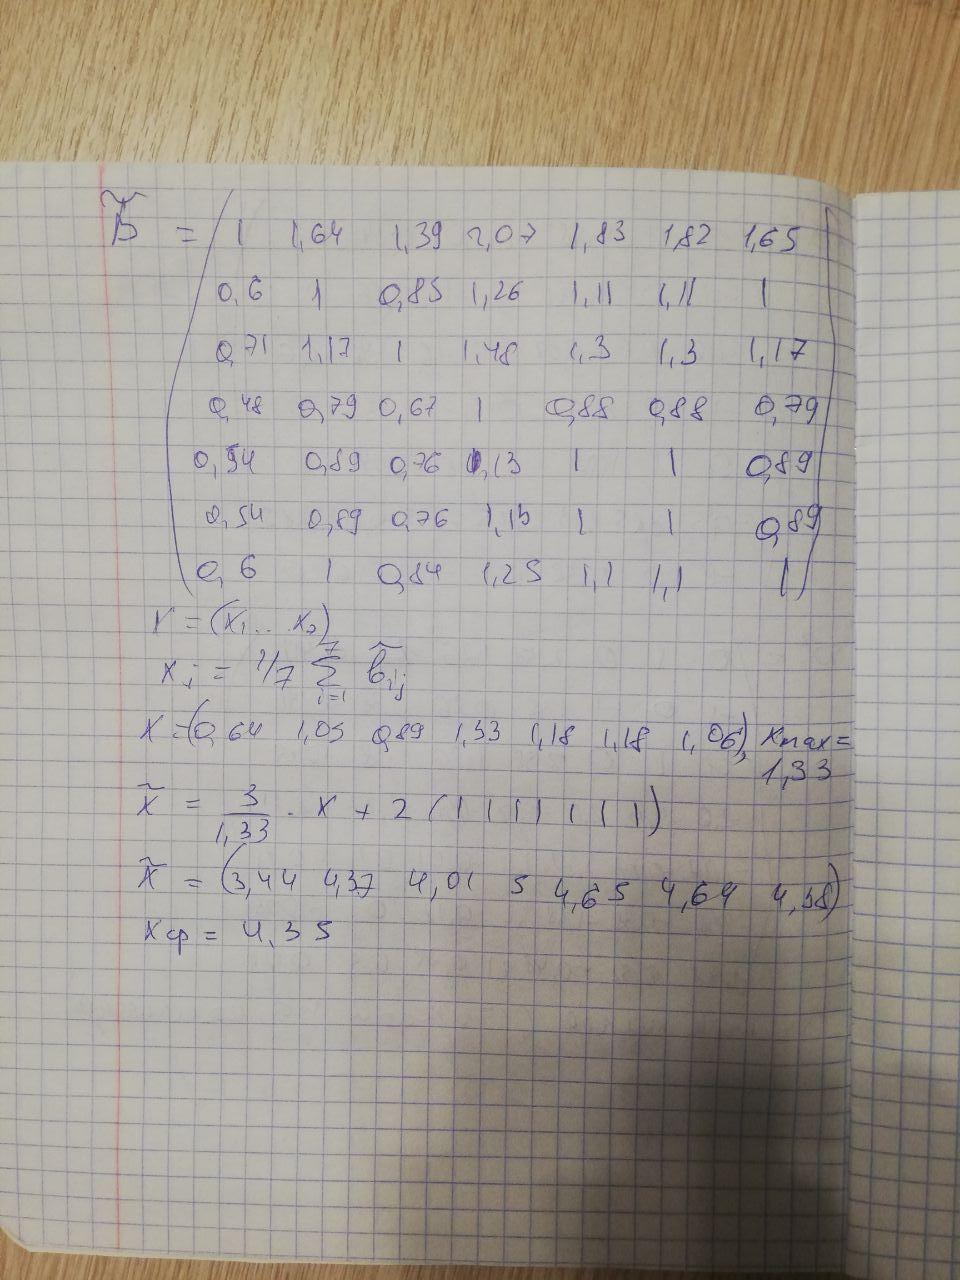 B̃ = ( 1 1,64 1,39 2,07 1,83 1,82 1,65
0,6 1 0,85 1,26 1,11 1,11 1
0,71 1,17 1 1,48 1,3 1,3 1,17
0,48 0,79 0,67 1 0,88 0,88 0,79
0,54 0,89 0,76 1,13 1 1 0,89
0,54 0,89 0,76 1,13 1 1 0,89
0,6 1 0,84 1,25 1,1 1,1 1 )
X = (x₁... x₇)
xⱼ = 1/7 7 Σ i=1 b̃ij
X = (0,64 1,05 0,89 1,33 1,18 1,18 1,06), xmax =
1,33
x̃ = 3/1,33 · X + 2 (1 1 1 1 1 1 1)
x̃ = (3,44 4,37 4,01 5 4,65 4,64 4,38)
xср = 4,35